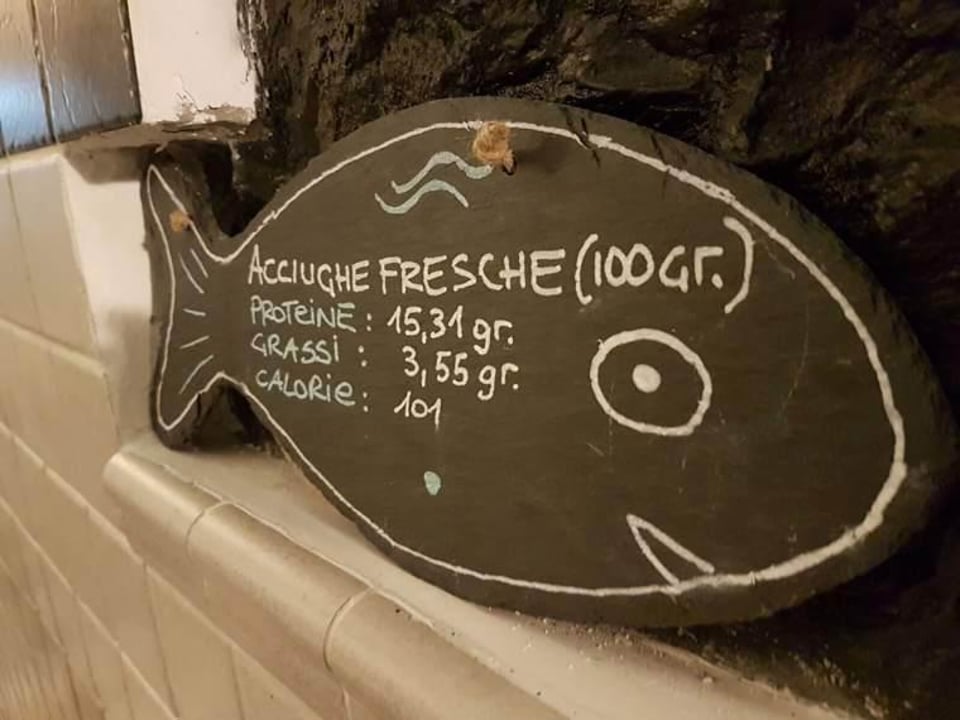 ACCIUGHE FRESCHE (100 Gr.)
PROTEINE: 15,31 gr.
GRASSI: 3,55 gr.
CALORIE: 101